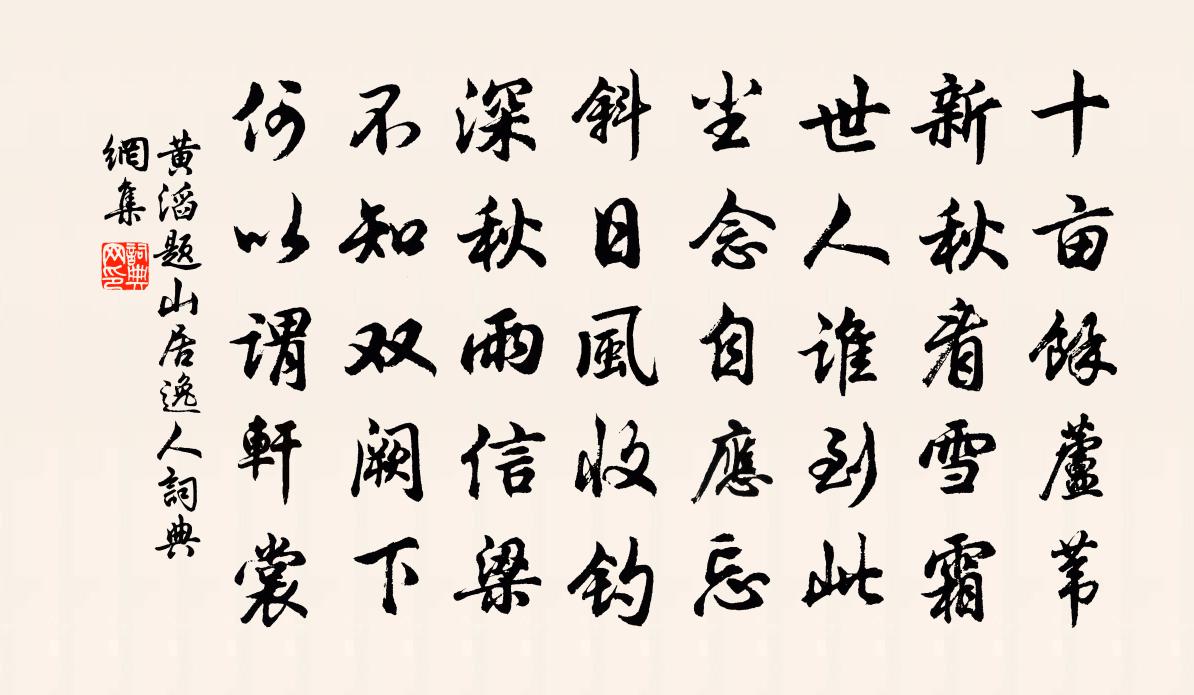 十亩餘蘆葦
新秋看雪霜
世人誰到此
尘念自應忘
斜日風收钓
深秋雨信梁
不知双阙下
何以谓軒裳
黄滔题山居逸人詞典
網集
詞典网印